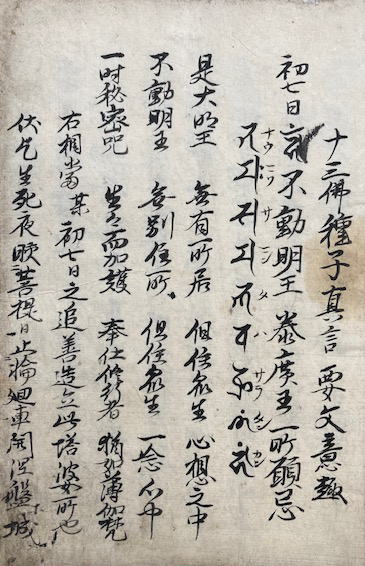 十三佛種子真言要文意趣
初七日 不動明王 秦廣王 一所願忌
ナウ マク サ マン タ ハ サラ タン カン
是大明王 無有所居 但住衆生 心想之中
不動明王 無別住所 但住衆生 一念心中
一時秘密呪 生々而加護 奉仕修行者 猶如薄伽梵
右相當某初七日之追善造立此塔婆一所也
伏乞生死夜暁菩提日 輪廻車 涅槃城